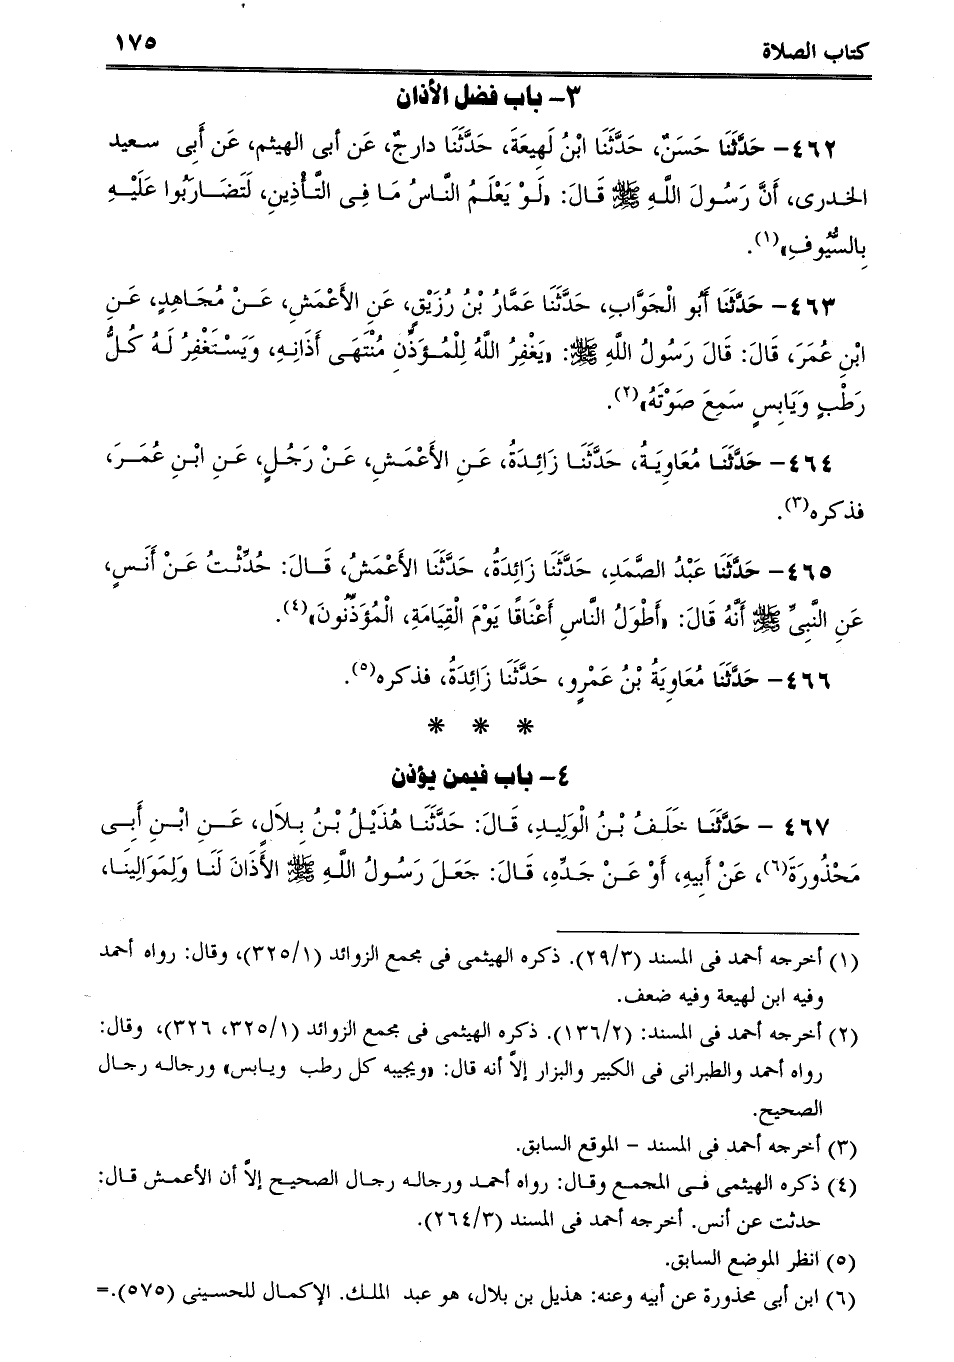 كتاب الصلاة ١٧٥
٣- باب فضل الأذان
٤٦٢- حَدَّثَنَا حَسَنٌ، حَدَّثَنَا ابْنُ لَهِيعَةَ، حَدَّثَنَا دارجٌ، عَن أبى الهيثم، عَن أَبِى سـعيد
الخدرى، أَنَّ رَسُولَ اللَّهِ ﷺ قَالَ: «لَوْ يَعْلَمُ النَّاسُ مَا فِى التَّأْذِينِ، لَتَضَارَبُوا عَلَيْهِ
بِالسُّيُوفِ»(١).
٤٦٣- حَدَّثَنَا أَبُو الْجَوَّابِ، حَدَّثَنَا عَمَّارُ بْنُ رُزَيْقٍ، عَنِ الأَعْمَشِ، عَنْ مُجَاهِدٍ، عَنِ
ابْنِ عُمَرَ، قَالَ: قَالَ رَسُولُ اللَّهِ ﷺ: «يَغْفِرُ اللَّهُ لِلْمُؤَذِّنِ مُنْتَهَى أَذَانِهِ، وَيَسْتَغْفِرُ لَهُ كُلُّ
رَطْبٍ وَيَابِسٍ سَمِعَ صَوْتَهُ»(٢).
٤٦٤- حَدَّثَنَا مُعَاوِيَةُ، حَدَّثَنَا زَائِدَةُ، عَنِ الأَعْمَشِ، عَنْ رَجُلٍ، عَنِ ابْنِ عُمَرَ،
فذكره(٣).
٤٦٥- حَدَّثَنَا عَبْدُ الصَّمَدِ، حَدَّثَنَا زَائِدَةُ، حَدَّثَنَا الأَعْمَشُ، قَالَ: حُدِّثْتُ عَنْ أَنَسٍ،
عَنِ النَّبِىِّ ﷺ أَنَّهُ قَالَ: «أَطْوَلُ النَّاسِ أَعْنَاقًا يَوْمَ الْقِيَامَةِ، الْمُؤَذِّنُونَ»(٤).
٤٦٦- حَدَّثَنَا مُعَاوِيَةُ بْنُ عَمْرٍو، حَدَّثَنَا زَائِدَةُ، فذكره(٥).
* * *
٤- باب فيمن يؤذن
٤٦٧ - حَدَّثَنَا خَلَفُ بْنُ الْوَلِيدِ، قَالَ: حَدَّثَنَا هُذَيْلُ بْنُ بِلَالٍ، عَنِ ابْنِ أَبِى
مَحْذُورَةَ(٦)، عَنْ أَبِيهِ، أَوْ عَنْ جَدِّهِ، قَالَ: جَعَلَ رَسُولُ اللَّهِ ﷺ الأَذَانَ لَنَا وَلِمَوَالِينَا،
(١) أخرجه أحمد فى المسند (٢٩/٣). ذكره الهيثمى فى مجمع الزوائد (٣٢٥/١)، وقال: رواه أحمد
وفيه ابن لهيعة وفيه ضعف.
(٢) أخرجه أحمد فى المسند: (١٣٦/٢). ذكره الهيثمى فى مجمع الزوائد (٣٢٥/١، ٣٢٦)، وقال:
رواه أحمد والطبرانى فى الكبير والبزار إلاَّ أنه قال: «ويجيبه كل رطب ويـابس» ورجالـه رجـال
الصحيح.
(٣) أخرجه أحمد فى المسند - الموقع السابق.
(٤) ذكره الهيثمى فـى المجمع وقال: رواه أحمـد ورجالـه رجـال الصحيح إلاَّ أن الأعمـش قـال:
حدثت عن أنس. أخرجه أحمد فى المسند (٢٦٤/٣).
(٥) انظر الموضع السابق.
(٦) ابن أبى محذورة عن أبيه وعنه: هذيل بن بلال، هو عبد الملـك. الإكمـال للحسينى (٥٧٥).=